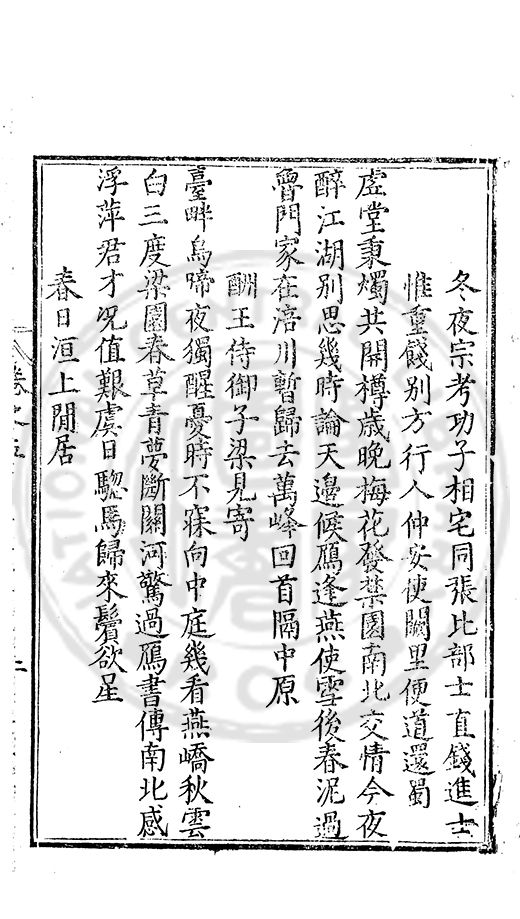 冬夜宗考功子相宅同張比部士直錢進士
惟重餞別方行人仲安使闕里便道還蜀
虛堂秉燭共開樽歲晚梅花發禁園南北交情今夜
醉江湖別思幾時論天邊候鴈逢燕使雪後春泥過
魯門家在涪川暫歸去萬峰回首隔中原
酬王侍御子梁見寄
臺畔烏啼夜獨醒憂時不寐向中庭幾看燕嶠秋雲
白三度梁園春草青夢斷關河驚過鴈書傳南北感
浮萍君才况值艱虞日驄馬歸來鬢欲星
春日洹上閒居
卷之五
二